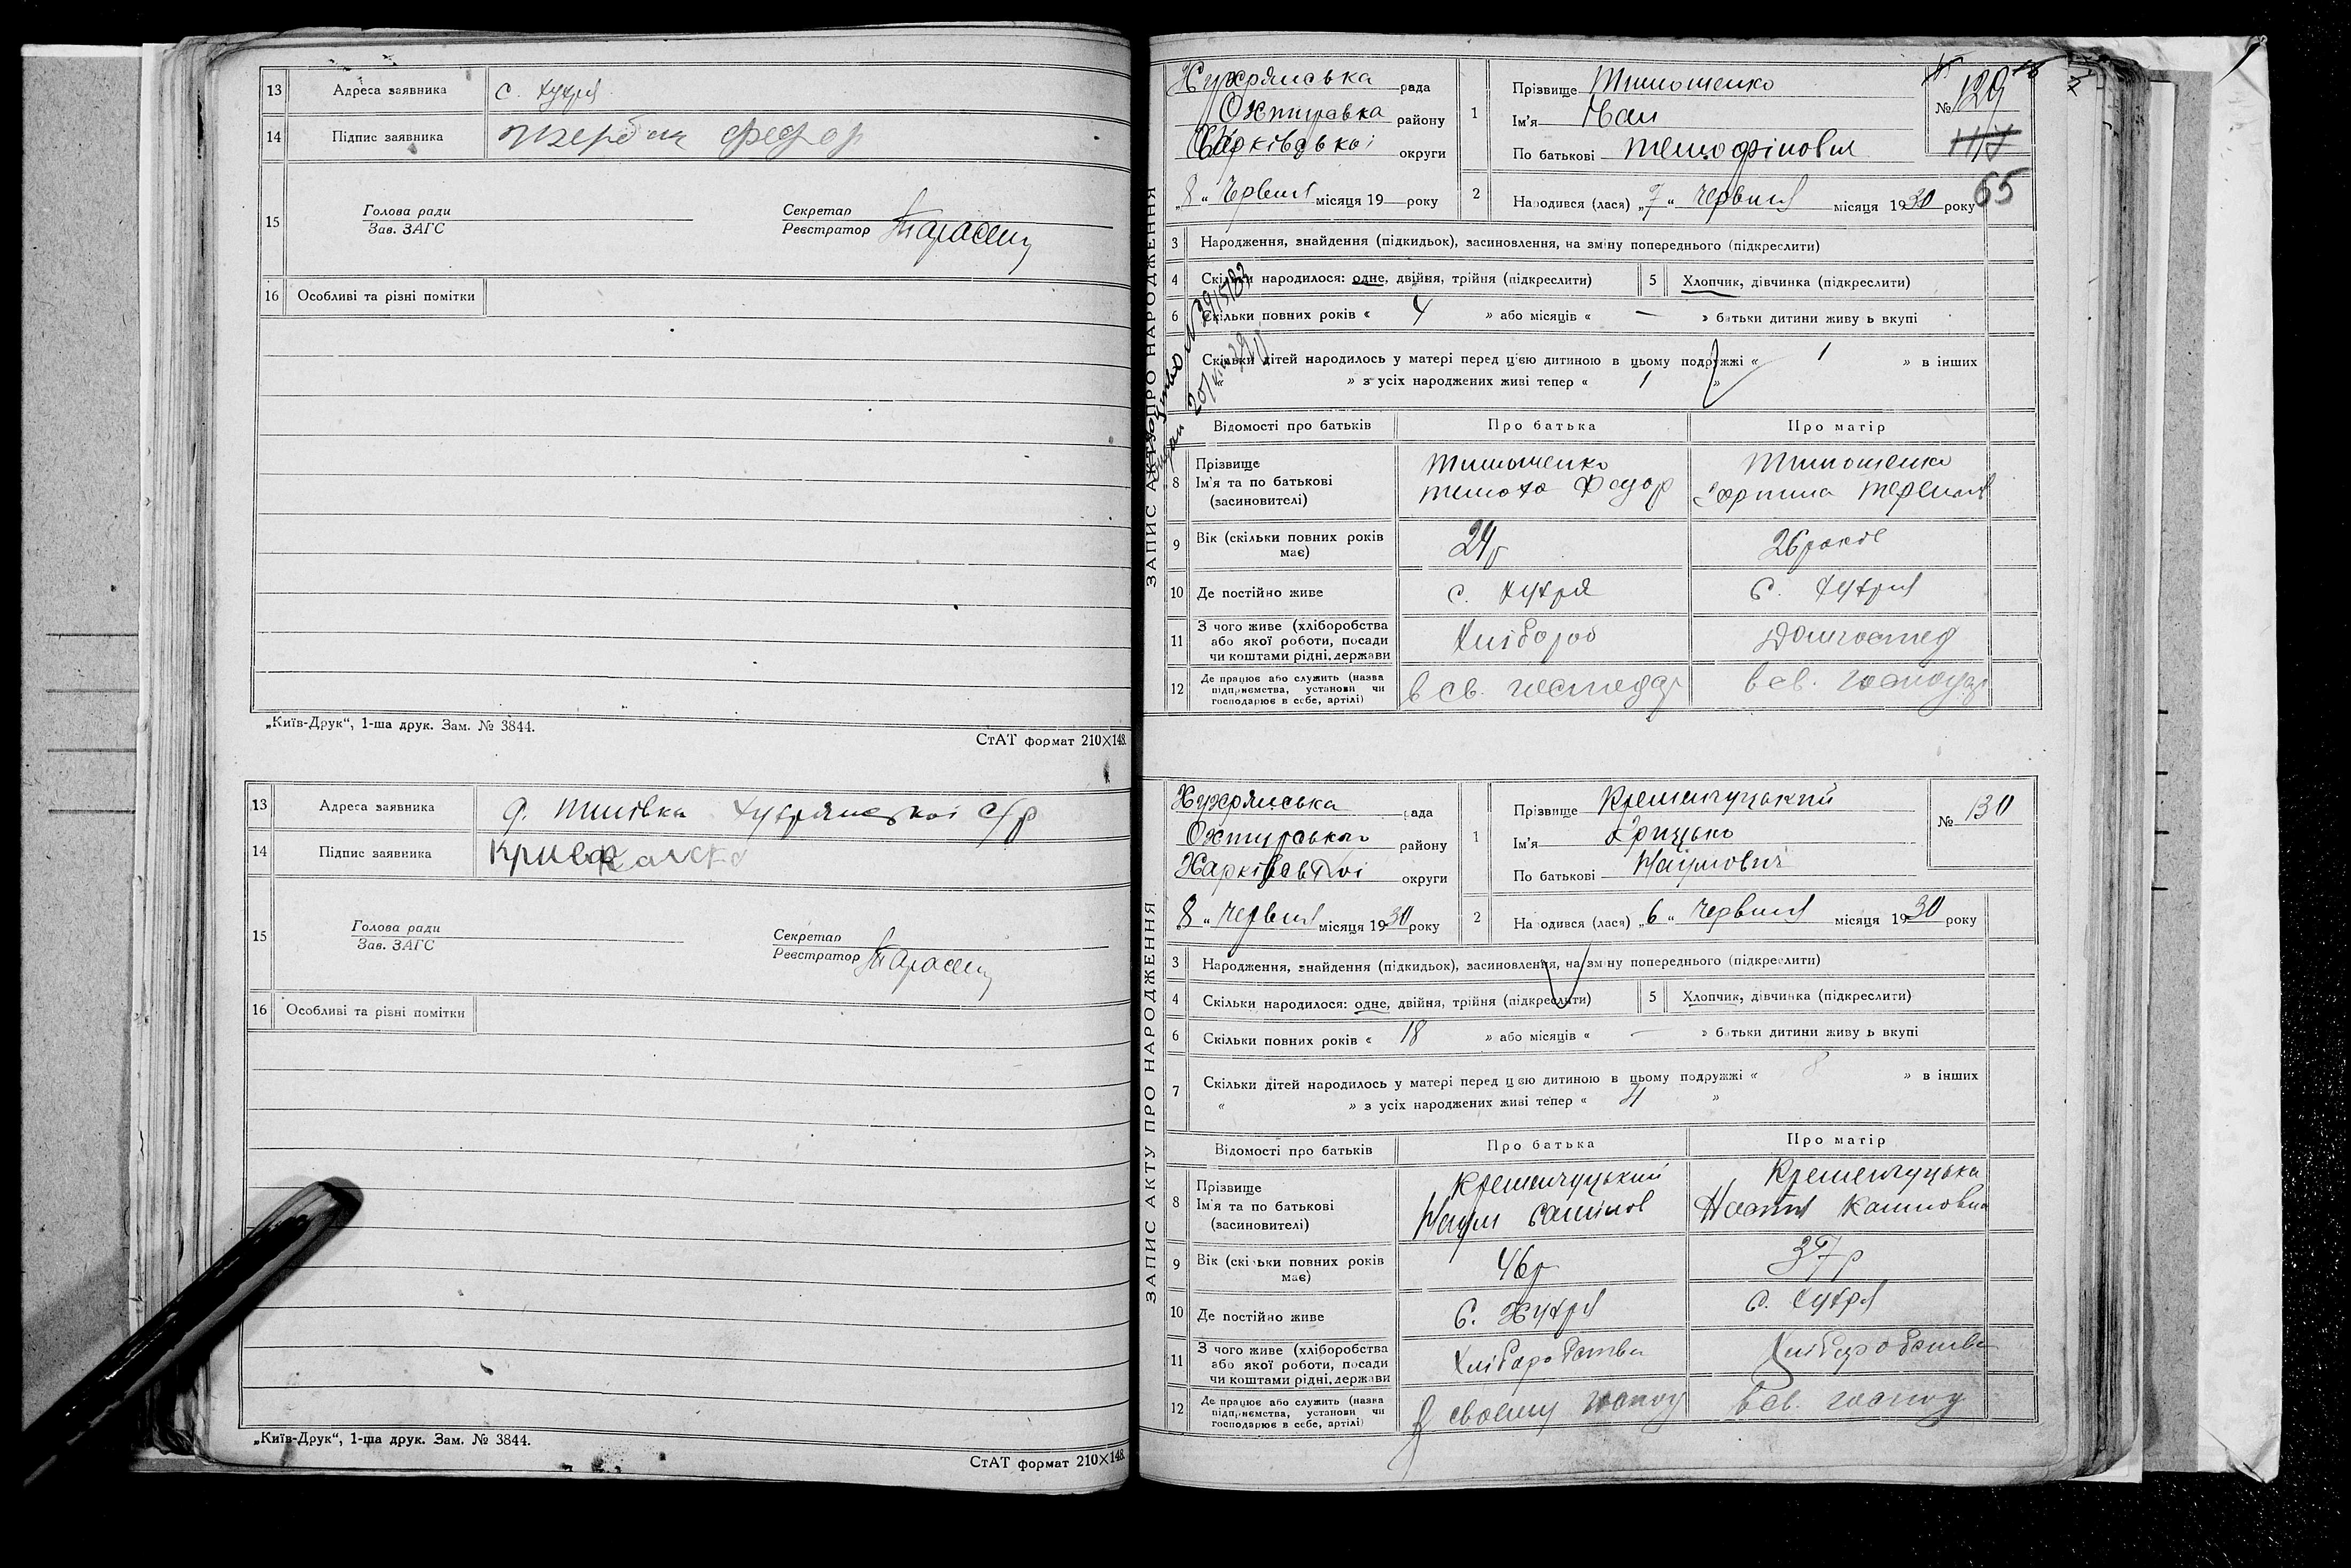 13 Адреса заявника с. Хухря
14 Підпис заявника Щербак Федор
Голова ради Секретар
15 Зав. ЗАГС Реєстратор Тарасенк
16 Особливі та різні помітки
„Київ-Друк“, 1-ша друк. Зам. № 3844.
СтАТ формат 210×148.
13 Адреса заявника Хухрянської с/р
14 Підпис заявника
Голова ради Секретар
15 Зав. ЗАГС Реєстратор Тарасенк
16 Особливі та різні помітки
„Київ-Друк“, 1-ша друк. Зам. № 3844.
СтАТ формат 210×148.
ЗАПИС АКТУ ПРО НАРОДЖЕННЯ
Хухрянська рада
Охтирська району
Харківської округи
„8“ Червня місяця 19 року
1 Прізвище Тимошенко
Ім'я Іван
По батькові
№ 129
65
2 Народився (лася) „7“ Червня місяця 1930 року
3 Народження, знайдення (підкидьок), засиновлення, на зміну попереднього (підкреслити)
4 Скільки народилося: одне, двійня, трійня (підкреслити) 5 Хлопчик, дівчинка (підкреслити)
6 Скільки повних років « 4 » або місяців « — » батьки дитини живуть вкупі
Скільки дітей народилось у матері перед цією дитиною в цьому подружжі « 1 » в інших
» з усіх народжених живі тепер « 1 »
Відомості про батьків Про батька Про матір
8 Прізвище Тимошенко Тимошенко
Ім'я та по батькові Федор
(засиновителі)
9 Вік (скільки повних років має) 24 р 26 років
10 Де постійно живе с. Хухря с. Хухря
11 З чого живе (хліборобства Хлібороб Домгоспод
або якої роботи, посади
чи коштами рідні, держави
12 Де працює або служить (назва в св. господар в св. господар
підприємства, установи чи
господарює в себе, артілі)
ЗАПИС АКТУ ПРО НАРОДЖЕННЯ
Хухрянська рада
Охтирського району
Харківської округи
„8“ Червня місяця 1930 року
1 Прізвище Кременчуцький
Ім'я Грицько
По батькові Наумович
№ 130
2 Народився (лася) „6“ Червня місяця 1930 року
3 Народження, знайдення (підкидьок), засиновлення, на зміну попереднього (підкреслити)
4 Скільки народилося: одне, двійня, трійня (підкреслити) 5 Хлопчик, дівчинка (підкреслити)
6 Скільки повних років « 18 » або місяців « — » батьки дитини живуть вкупі
7 Скільки дітей народилось у матері перед цією дитиною в цьому подружжі « 8 » в інших
« » з усіх народжених живі тепер « 4 »
Відомості про батьків Про батька Про матір
8 Прізвище Кременчуцький Кременчуцька
Ім'я та по батькові Наум Настя
(засиновителі)
9 Вік (скільки повних років має) 46 р 37 р
10 Де постійно живе с. Хухря с. Хухря
11 З чого живе (хліборобства Хліборобства Хліборобства
або якої роботи, посади
чи коштами рідні, держави
12 Де працює або служить (назва В своєму господ в св. господ
підприємства, установи чи
господарює в себе, артілі)